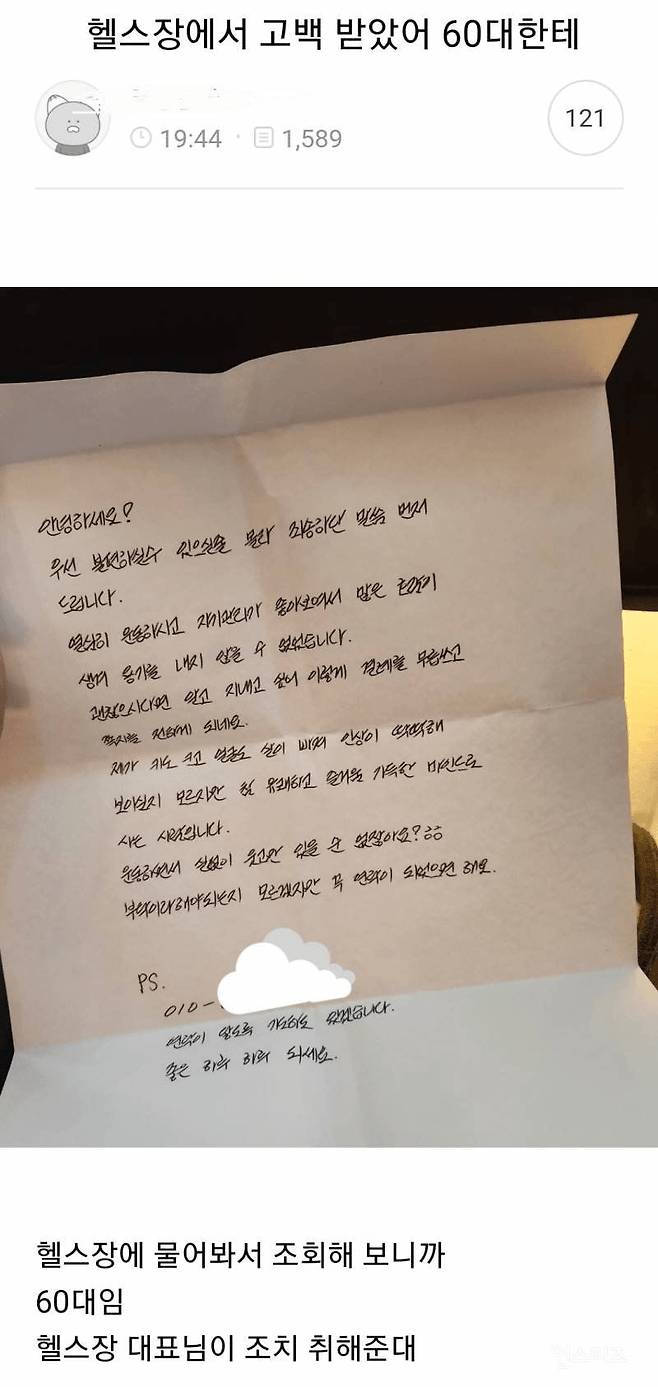 헬스장에서 고백 받았어 60대한테
19:44
1,589
121
안녕하세요!
우선 불편하실수 있으실줄 몰라 죄송하단 말씀 먼저
드립니다.
열심히 운동하시고 자기관리가 좋아보여서 많은 호감이
생겨 용기를 내지 않을 수 없었습니다.
괜찮으시다면 알고 지내고 싶어 이렇게 결례를 무릅쓰고
쪽지를 전하게 되네요.
제가 키도 크고 얼굴도 살이 빠져 인상이 딱딱해
보이실지 모르지만 참 유쾌하고 즐거움 가득한 마인드로
사는 사람입니다.
운동하면서 실없이 웃고만 있을 순 없잖아요?
부탁이라해야되는지 모르겠지만 꼭 연락이 되었으면 해요.
PS.
010-
연락이 않도록 기도하고 있겠습니다.
좋은 하루 하루 되세요.
헬스장에 물어봐서 조회해 보니까
60대임
헬스장 대표님이 조치 취해준대
인스티즈